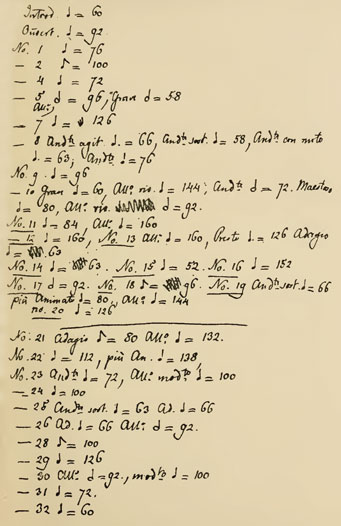 Introd. ♩ = 60
Ouvert. ♩ = 92.
No. 1 ♩ = 76
— 2 ♪ = 100
— 4 ♩ = 72
— 5 ♩ = 96, Grave ♩ = 58
All:
— 7 ♩ = 126
— 8 Andte agit. ♩. = 66, Andte sost. ♩ = 58, Andte con moto
♩. = 63; Andte ♩ = 76
No. 9. ♩ = 96
— 10 Grave ♩ = 60, All: viv. ♩ = 144; Andte ♩ = 72. Maestoso
♩ = 80, All: viv. ♩ = 92.
No. 11 ♩ = 84, All: ♩ = 160
— 12 ♩ = 160, No. 13 All: ♩ = 160, Presto ♩. = 126 Adagio
♩ = 63
No. 14 ♩ = 63. No. 15 ♩ = 52. No. 16 ♩ = 152
No. 17 ♩ = 92. No. 18 ♪ = 96. No. 19 Andte sost. ♩ = 66
più Animato ♩ = 80, All: ♩ = 144
no. 20 ♩ = 126
No. 21 Adagio ♪ = 80 All: ♩ = 132.
No. 22 ♩ = 112, più An. ♩ = 138
No. 23 Andte ♩ = 72, All: modto ♩ = 100
— 24 ♩ = 100
— 25 Andte sost. ♩ = 63 Ad. ♩ = 66
— 26 Ad. ♩ = 66 All: ♩ = 92.
— 28 ♪ = 100
— 29 ♩ = 126
— 30 All: ♩ = 92., modto ♩ = 100
— 31 ♩ = 72.
— 32 ♩ = 60